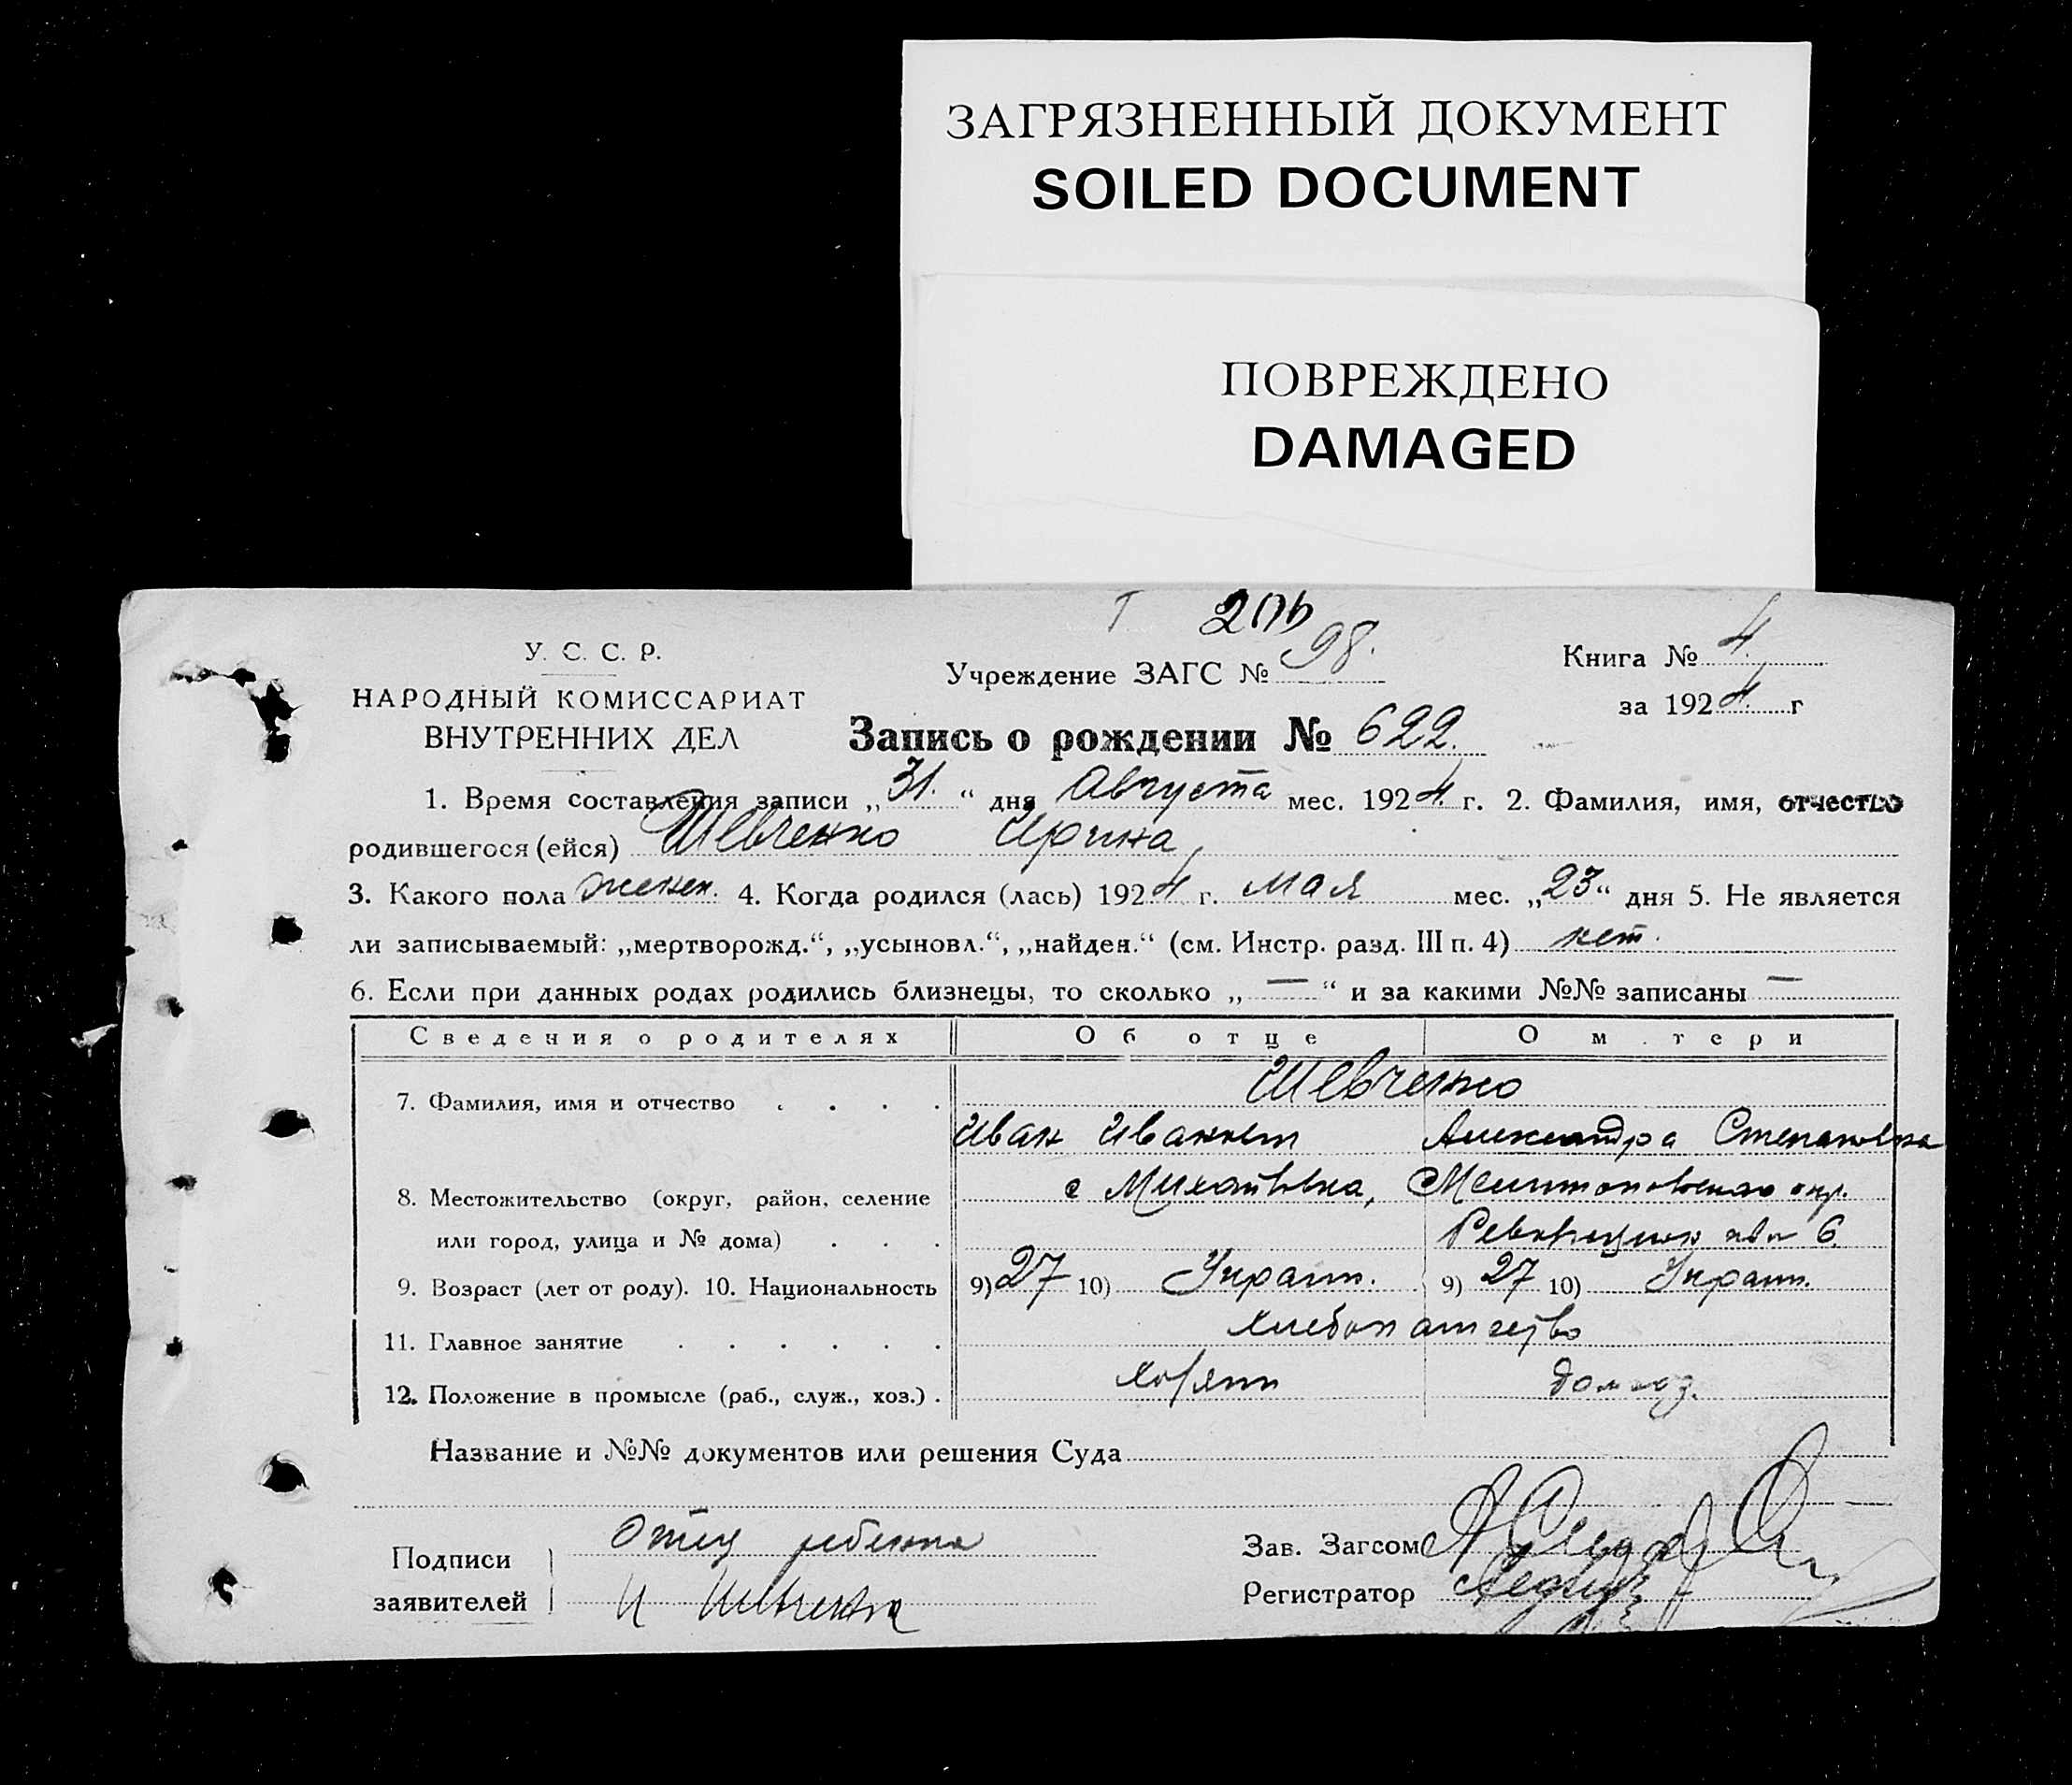 ЗАГРЯЗНЕННЫЙ ДОКУМЕНТ
SOILED DOCUMENT
ПОВРЕЖДЕНО
DAMAGED
У. С. С. Р.
НАРОДНЫЙ КОМИССАРИАТ
ВНУТРЕННИХ ДЕЛ
Учреждение ЗАГС № 98.
Книга № 4
за 1924 г
Запись о рождении № 622.
1. Время составления записи „31.“ дня Августа мес. 1924 г. 2. Фамилия, имя, отчество
родившегося (ейся) Шевченко Ирина
3. Какого пола женск. 4. Когда родился (лась) 1924 г. мая мес. „23“ дня 5. Не является
ли записываемый: „мертворожд.“, „усыновл.“, „найден.“ (см. Инстр. разд. III п. 4) нет.
6. Если при данных родах родились близнецы, то сколько „—“ и за какими №№ записаны —
Сведения о родителях Об отце О м тери
Шевченко
7. Фамилия, имя и отчество
Иван Иванович Александра Степановна
8. Местожительство (округ, район, селение с Михайловка, Мелитопольского окр.
или город, улица и № дома) 6
9. Возраст (лет от роду). 10. Национальность 9) 27 10) Украин. 9) 27 10) Украин.
11. Главное занятие хлебопашество
12. Положение в промысле (раб., служ., хоз.) хозяин домхоз.
Название и №№ документов или решения Суда
Подписи заявителей Отец ребенка
И Шевченко
Зав. Загсом
Регистратор